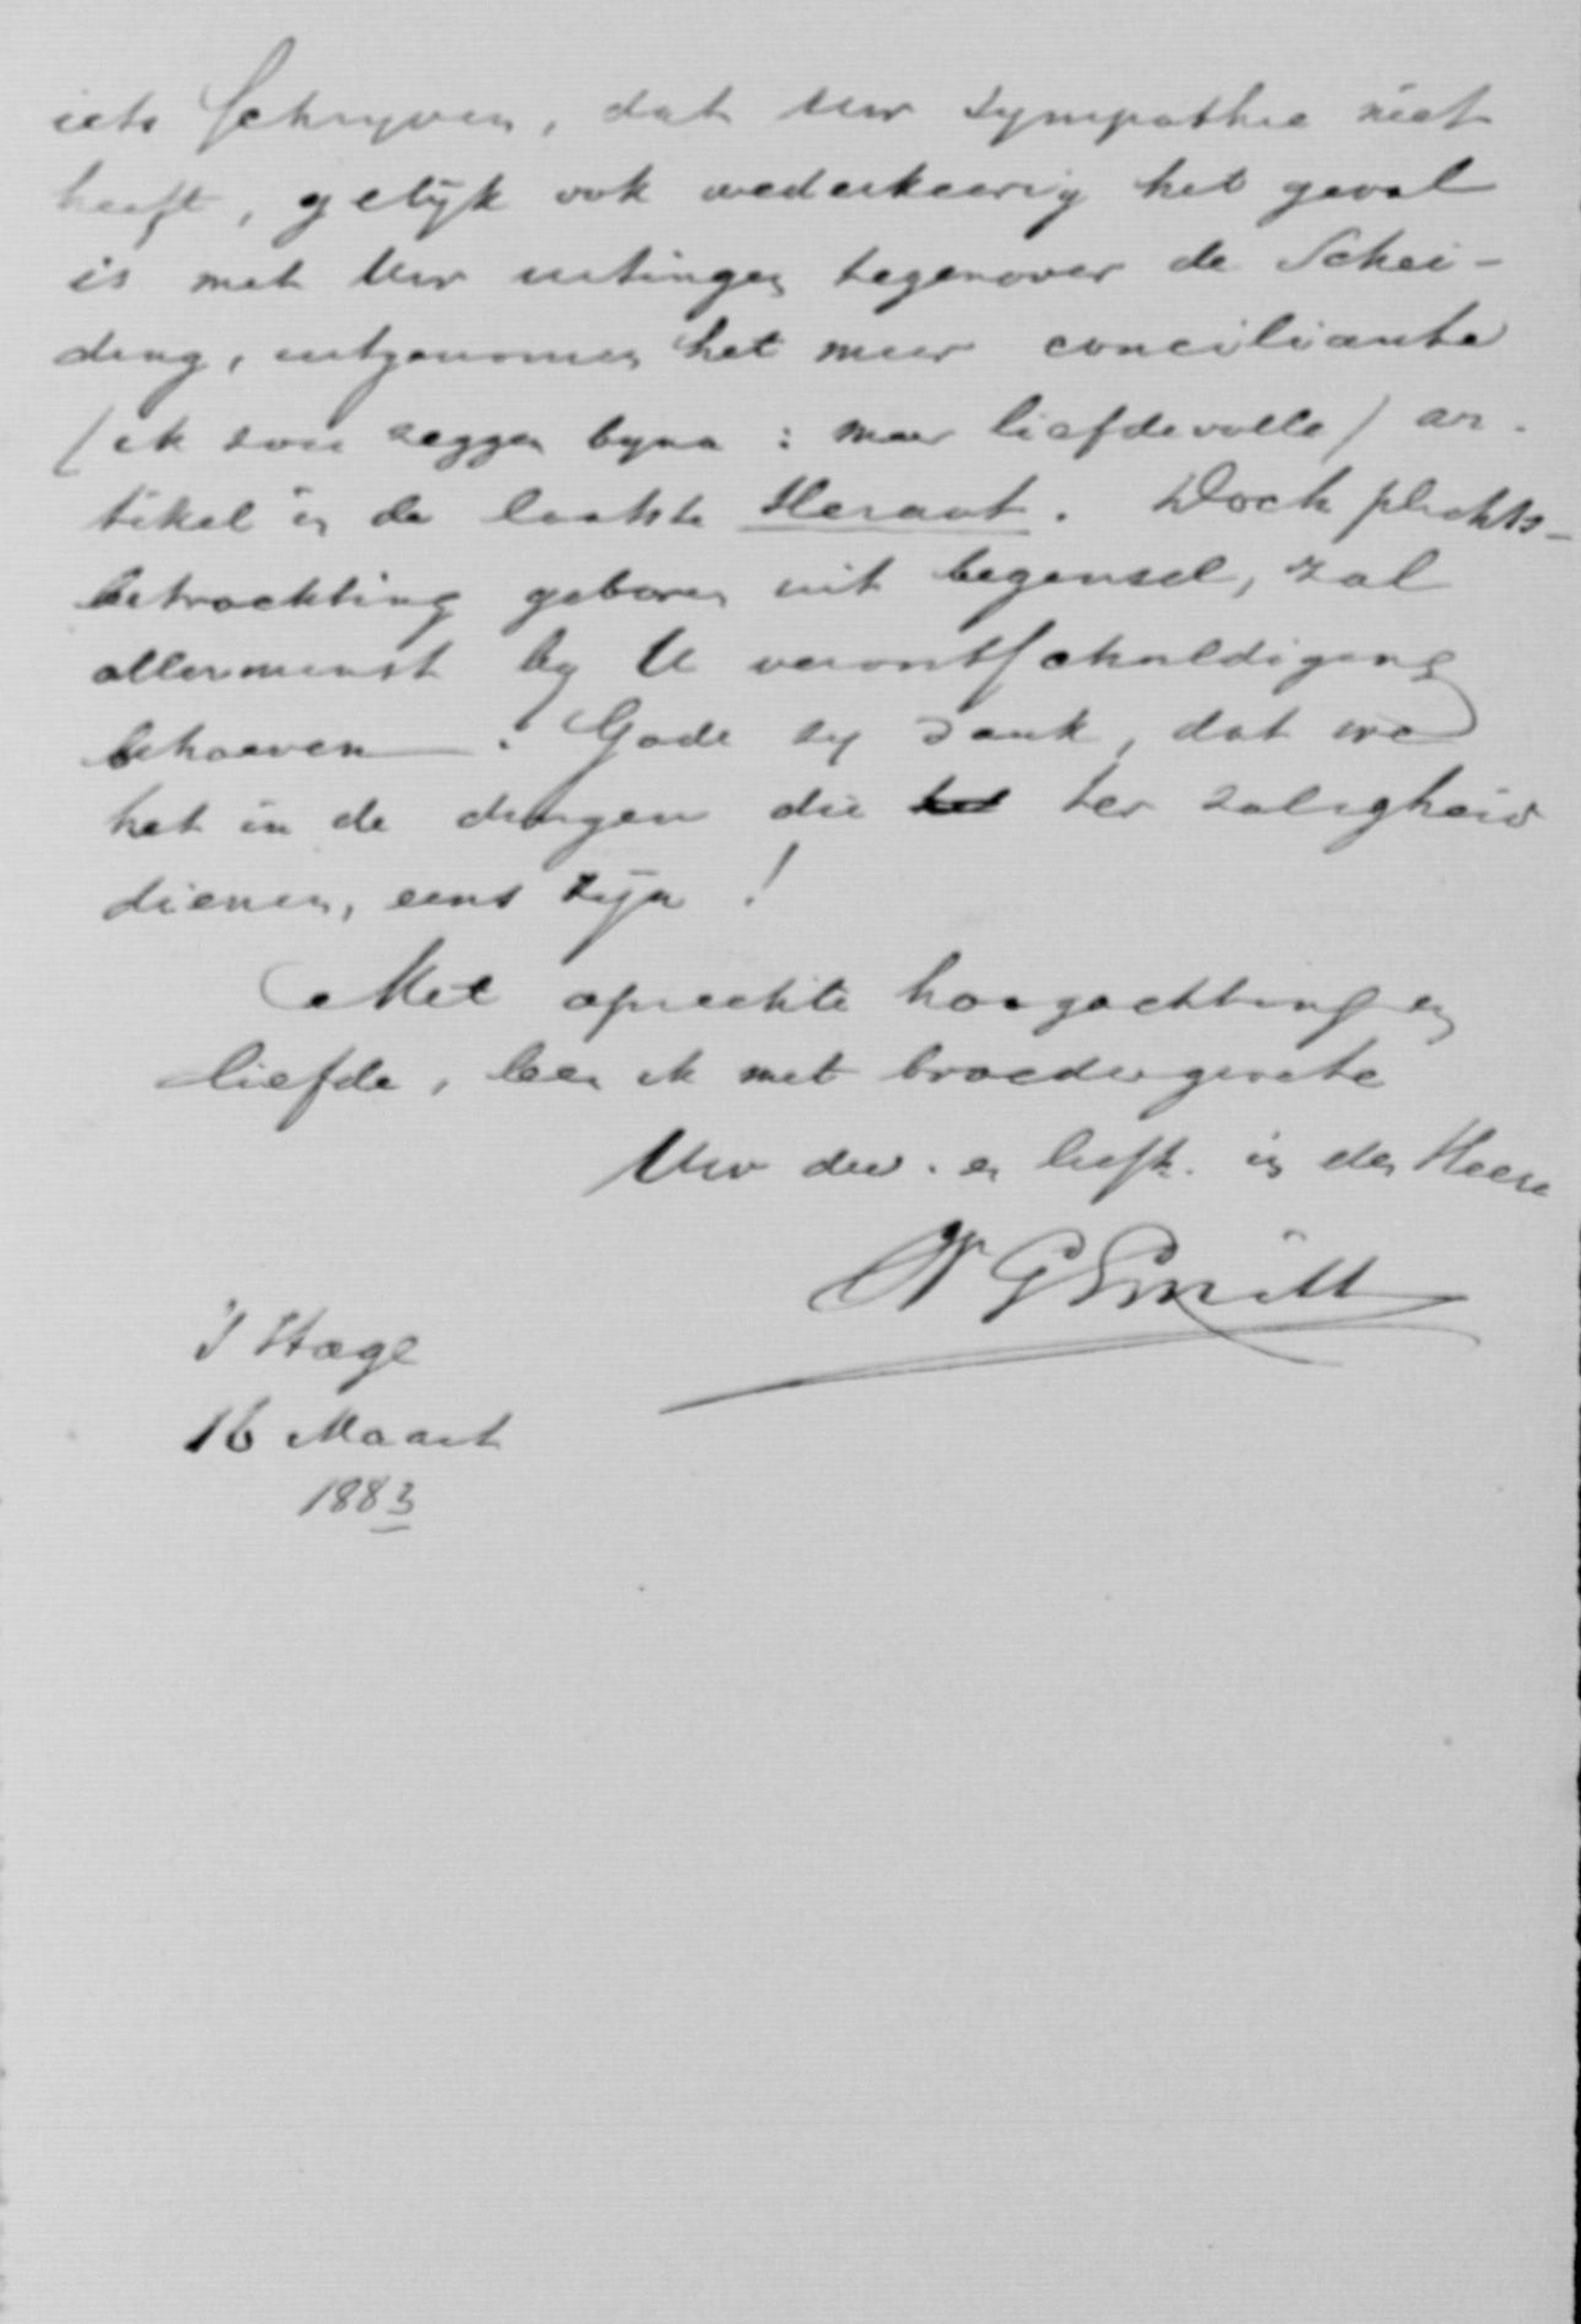 iets schryven, dat Uw sympathie niet
heeft, gelijk ook wederkeerig het geval
is met Uw uitingen tegenover de Schei-
ding, uitgenomen het meer conciliante
(ik zou zeggen byna: meer liefdevolle) ar-
tikel in de laatste Heraut. Doch plichts-
betrachting geboren uit beginsel, zal
allerminst by U verontschuldiging
behoeven. Gode zy dank, dat we
het in de dingen die ter zaligheid
dienen, eens zijn!
Met oprechte hoogachting en
liefde, ben ik met broedergroete
Uw dw. en liefh. in den Heere
G Smitt
's Hage
16 Maart
1883